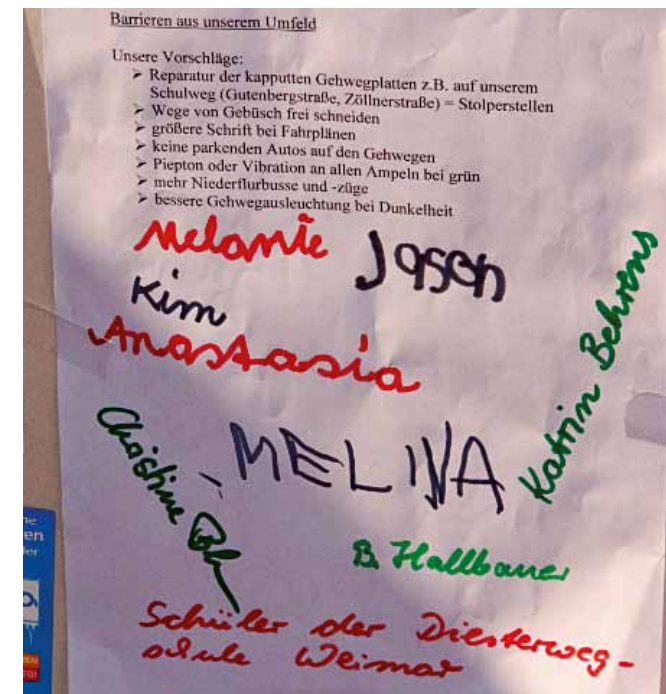 Barrieren aus unserem Umfeld
Unsere Vorschläge:
➤ Reparatur der kapputten Gehwegplatten z.B. auf unserem
Schulweg (Gutenbergstraße, Zöllnerstraße) = Stolperstellen
➤ Wege von Gebüsch frei schneiden
➤ größere Schrift bei Fahrplänen
➤ keine parkenden Autos auf den Gehwegen
➤ Piepton oder Vibration an allen Ampeln bei grün
➤ mehr Niederflurbusse und -züge
➤ bessere Gehwegausleuchtung bei Dunkelheit
Melanie Jason
Kim
Anastasia
Katrin Behrens
Christine
MELINA
B. Hallbauer
Schüler der Diesterweg-
schule Weimar